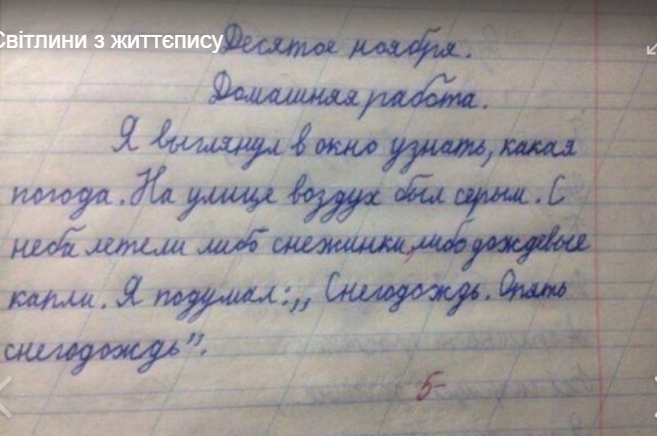 Світлини з життєпису
Десятое ноября.
Домашняя работа.
Я выглянул в окно узнать, какая
погода. На улице воздух был серым. С
неба летели либо снежинки, либо дождевые
капли. Я подумал: ,, Снегодождь. Опять
снегодождь".
5-